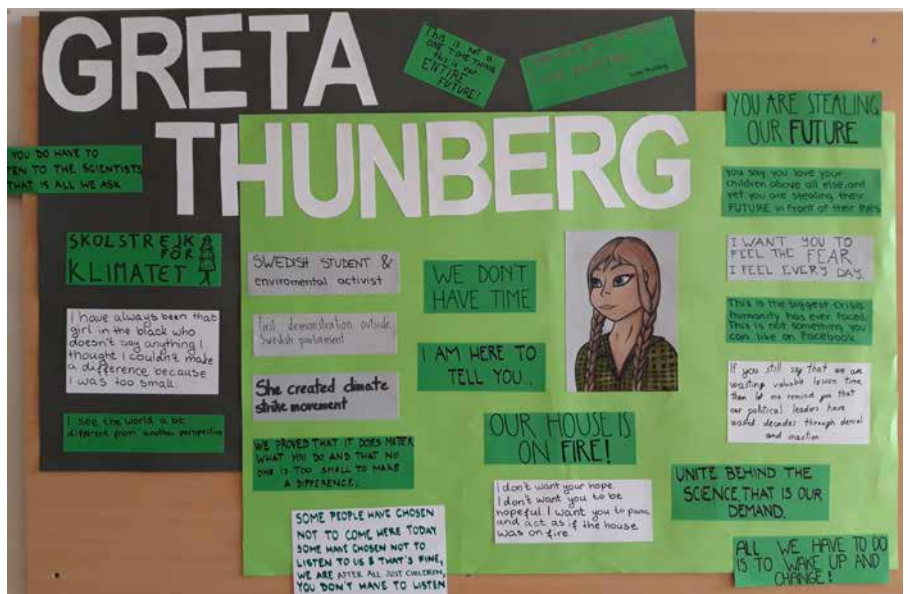 GRETA
THUNBERG
This is not a
ONE TIME THING
this is our
ENTIRE
FUTURE!
YOU DO HAVE TO
TEN TO THE SCIENTISTS
THAT IS ALL WE ASK
SKOLSTREJK
FÖR
KLIMATET
I have always been that
girl in the black who
doesn't say anything I
thought I couldn't make
a difference because
I was too small.
I see the world a bit
different from another perspective
SWEDISH STUDENT &
enviromental activist
First demonstration outside
Swedish parliament
She created climate
strike movement
WE PROVED THAT IT DOES MATER
WHAT YOU DO AND THAT NO
ONE IS TOO SMALL TO MAKE
A DIFFERENCE.
SOME PEOPLE HAVE CHOSEN
NOT TO COME HERE TODAY
SOME HAVE CHOSEN NOT TO
LISTEN TO US & THAT'S FINE,
WE ARE AFTER ALL JUST CHILDREN,
YOU DON'T HAVE TO LISTEN
WE DON'T
HAVE TIME
I AM HERE TO
TELL YOU..
OUR HOUSE IS
ON FIRE!
I don't want your hope.
I don't want you to be
hopeful I want you to panic
and act as if the house
was on fire.
YOU ARE STEALING
OUR FUTURE
You say you love your
children above all else, and
yet you are stealing their
FUTURE in front of their eyes
I WANT YOU TO
FEEL THE FEAR
I FEEL EVERY DAY.
This is the biggest crisis
humanity has ever faced.
This is not something you
can like on Facebook.
If you still say that we are
wasting valuable lesson time,
then let me remind you that
our political leaders have
decades through denial
and inaction
UNITE BEHIND THE
SCIENCE, THAT IS OUR
DEMAND.
ALL WE HAVE TO DO
IS TO WAKE UP AND
CHANGE!